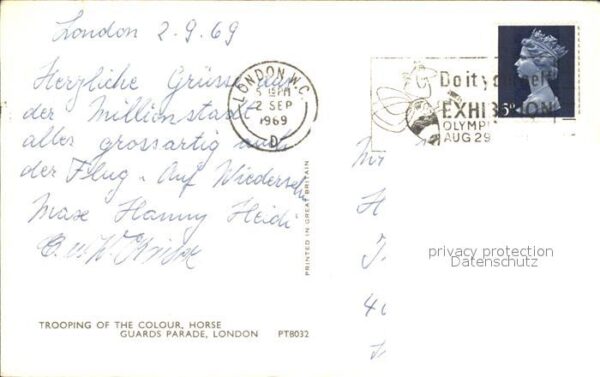 London 2.9.69
Herzliche Grüsse aus
der Millionstadt
alles grossartig auch
der Flug. Auf Wiedersehn
Max Hanny Heidi
TROOPING OF THE COLOUR, HORSE
GUARDS PARADE, LONDON PT8032
PRINTED IN GREAT BRITAIN
LONDON W.C.
5 PM
2 SEP
1969
D
Do it yourself
EXHIBITION
OLYMP
AUG 29
5D
privacy protection
Datenschutz